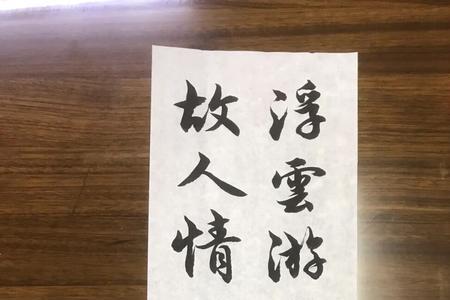 浮雲游
故人情